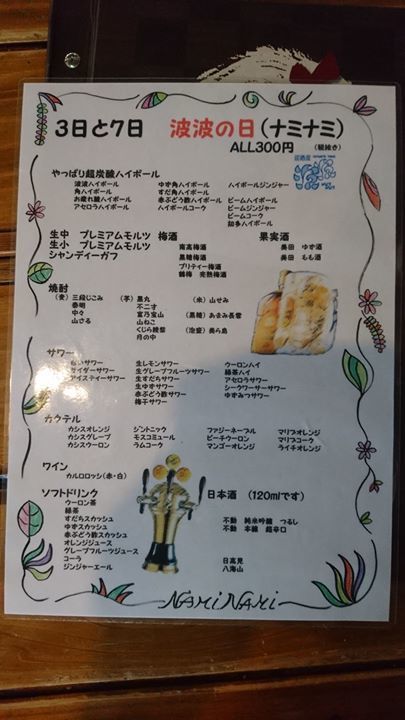 3日と7日 波波の日(ナミナミ)
ALL300円 (税抜き)
やっぱり超炭酸ハイボール
波波ハイボール ゆず角ハイボール ハイボールジンジャー
角ハイボール すだ角ハイボール
お疲れ様ハイボール 赤ぶどう酢ハイボール ビームハイボール
アセロラハイボール ハイボールコーク ビームジンジャー
ビームコーク
知多ハイボール
生中 プレミアムモルツ 梅酒 果実酒
生小 プレミアムモルツ 南高梅酒 奥田 ゆず酒
シャンディーガフ 黒糖梅酒 奥田 もも酒
プリティー梅酒
鶴梅 完熟梅酒
焼酎
(麦) 三段じこみ (芋) 黒丸 (米) 山せみ
壱明 不二才
中々 富乃宝山 (黒糖) あまみ長雲
山さる 山ねこ
くじら綾紫 (泡盛) 美ら島
月の中
サワー
サワー 生レモンサワー ウーロンハイ
サイダーサワー 生グレープフルーツサワー 緑茶ハイ
アイスティーサワー 生すだちサワー アセロラサワー
生ゆずサワー シークワーサーサワー
赤ぶどう酢サワー ゆずみつサワー
梅干サワー
カクテル
カシスオレンジ ジントニック ファジーネーブル マリブオレンジ
カシスグレープ モスコミュール ピーチウーロン マリブコーク
カシスウーロン ラムコーク マンゴーオレンジ ライチオレンジ
ワイン
カルロロッシ(赤・白)
ソフトドリンク 日本酒 (120mlです)
ウーロン茶
緑茶
すだちスカッシュ 不動 純米吟醸 つるし
ゆずスカッシュ 不動 本醸 超辛口
赤ぶどう酢スカッシュ
オレンジジュース
グレープフルーツジュース
コーラ 日高見
ジンジャーエール 八海山
NAMI NAMI